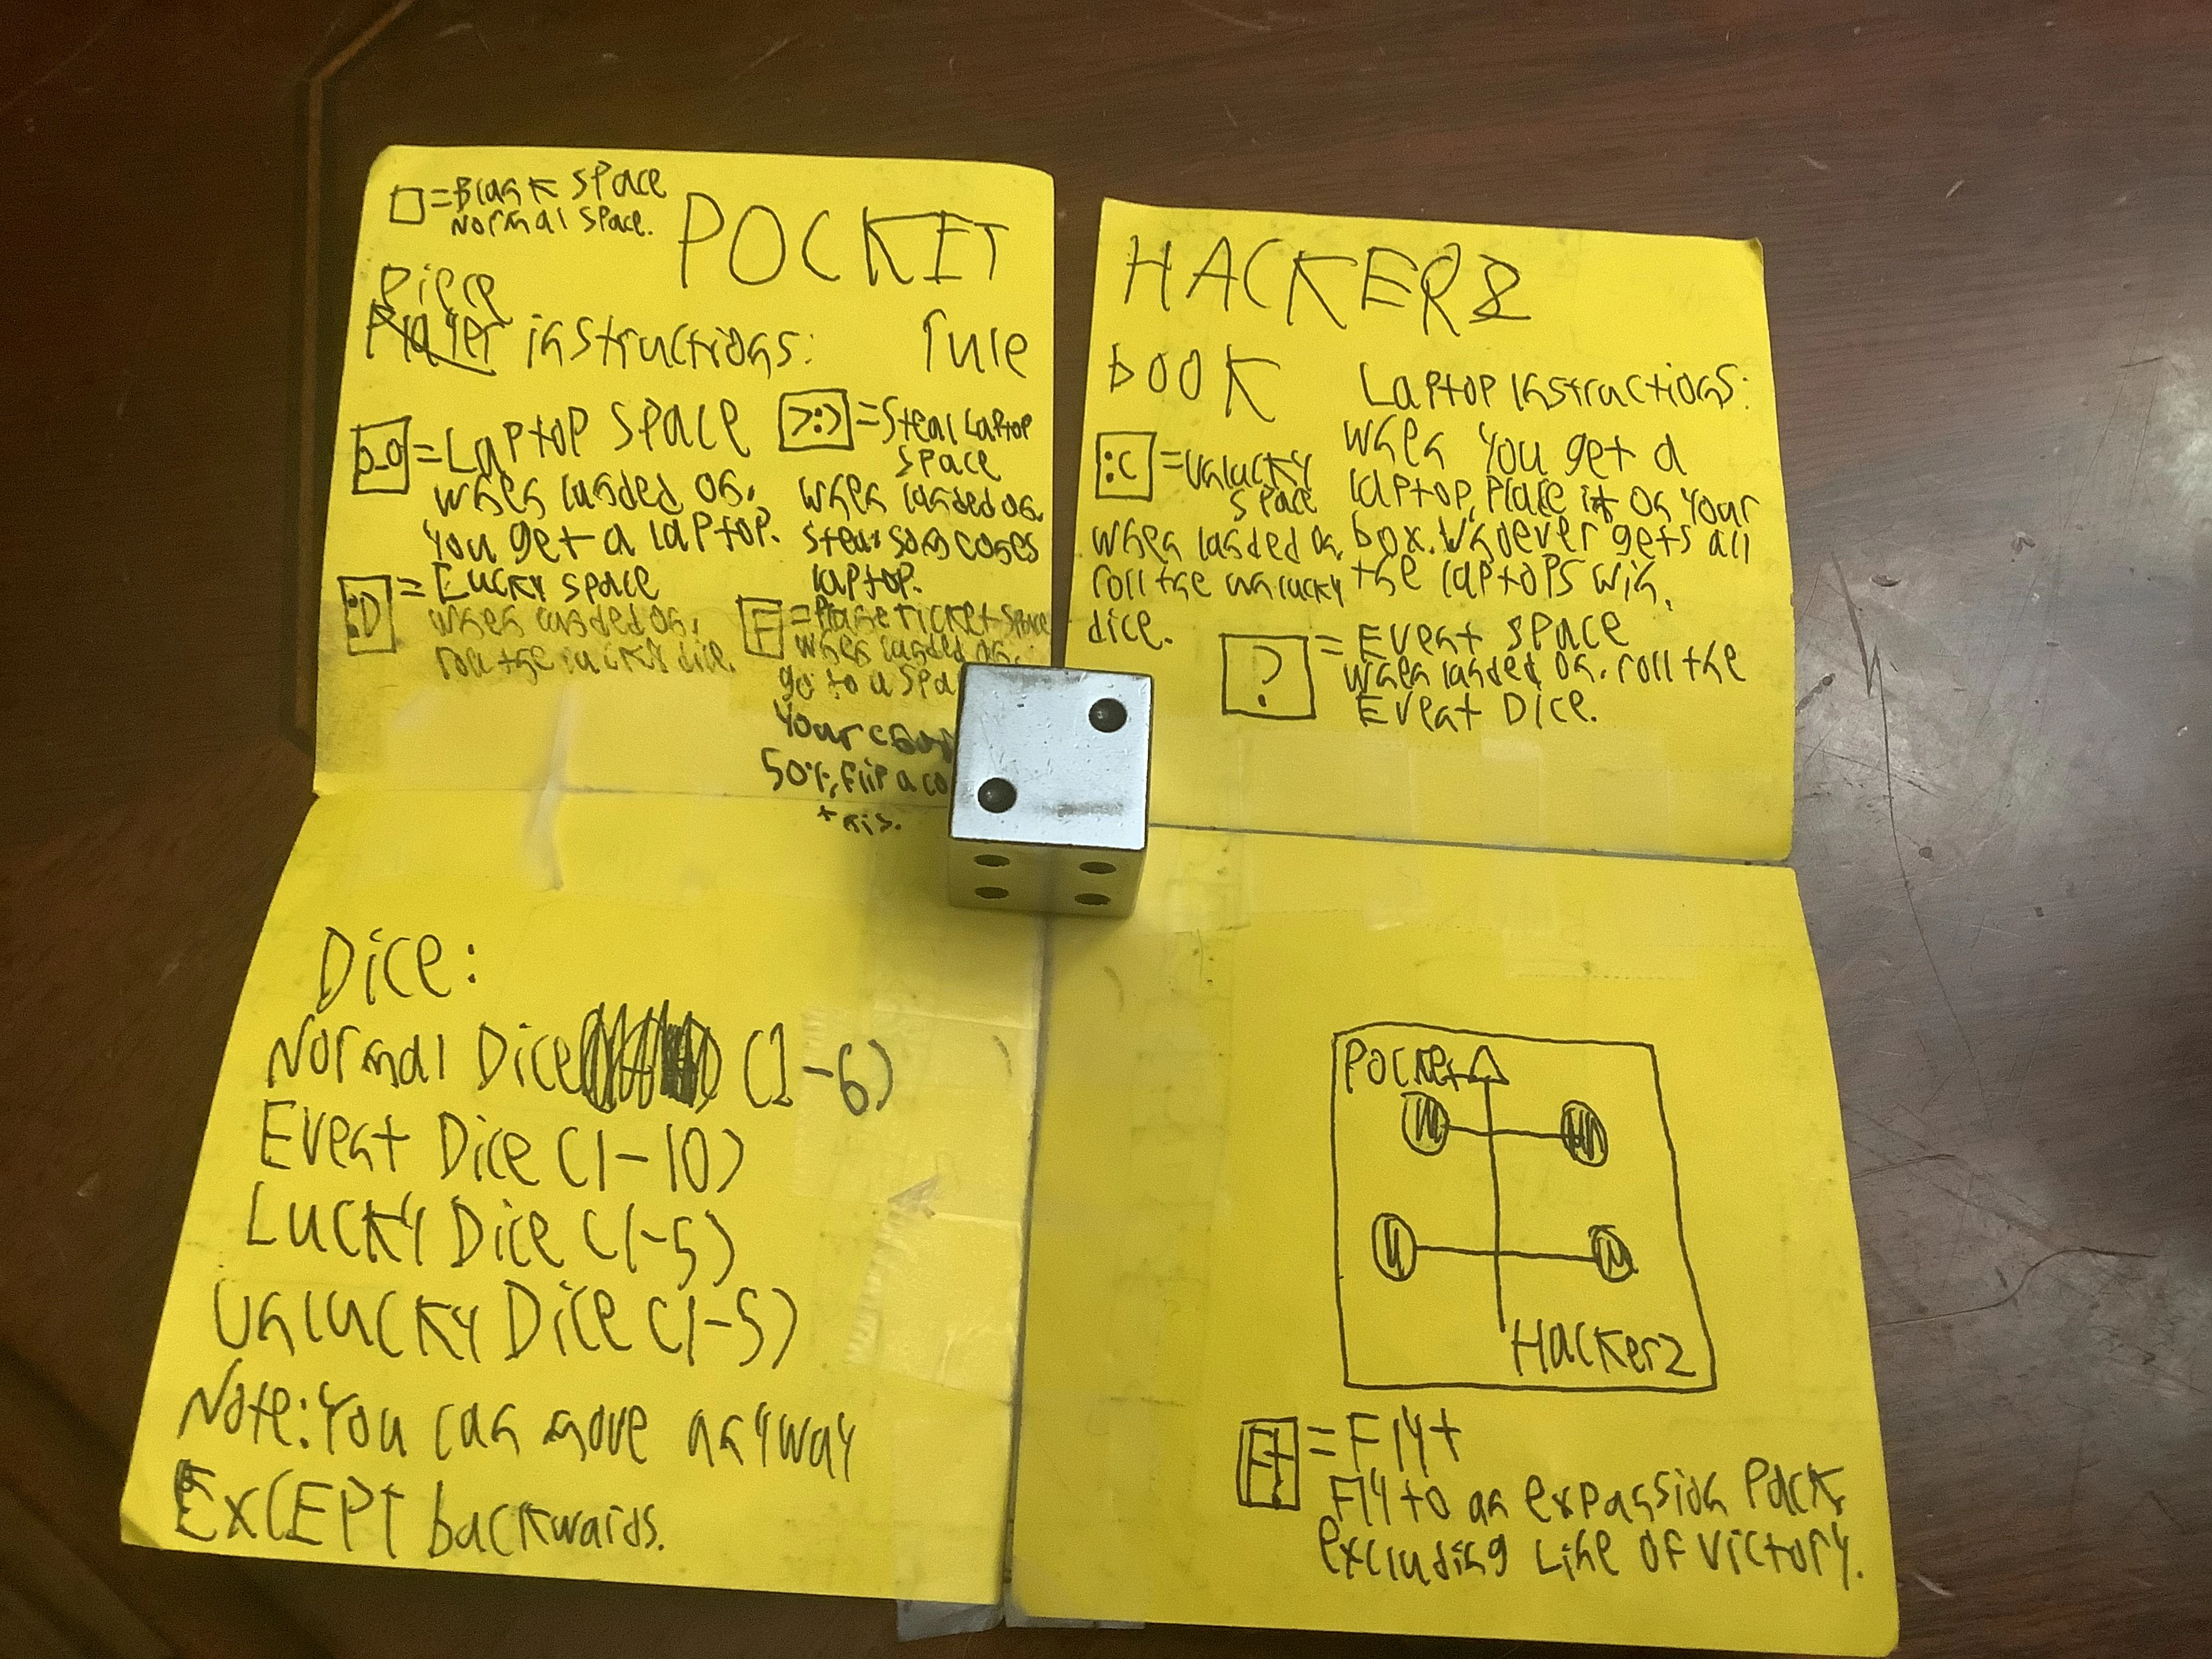 □=Blank space
Normal space.
POCKET
Piece
Player instructions:
rule
o_o=Laptop space
when landed on,
you get a laptop.
>:)=Steal Laptop
space
when landed on,
laptop.
:D=Lucky space
when landed on,
roll the lucky dice.
F=Plane ticket space
when landed on,
go to a
Your
50%, flip a
HACKERZ
book
Laptop instructions:
when you get a
laptop, place it on your
box. Whoever gets all
the laptops win.
:C=unlucky
space
when landed on,
roll the unlucky
dice.
?=Event space
when landed on, roll the
Event Dice.
Dice:
Normal Dice (1-6)
Event Dice (1-10)
Lucky Dice (1-5)
Unlucky Dice (1-5)
Note: You can move anyway
EXCEPT backwards.
Pocket
Hackerz
F+=Fly+
Fly to an expansion pack,
excluding Line of victory.